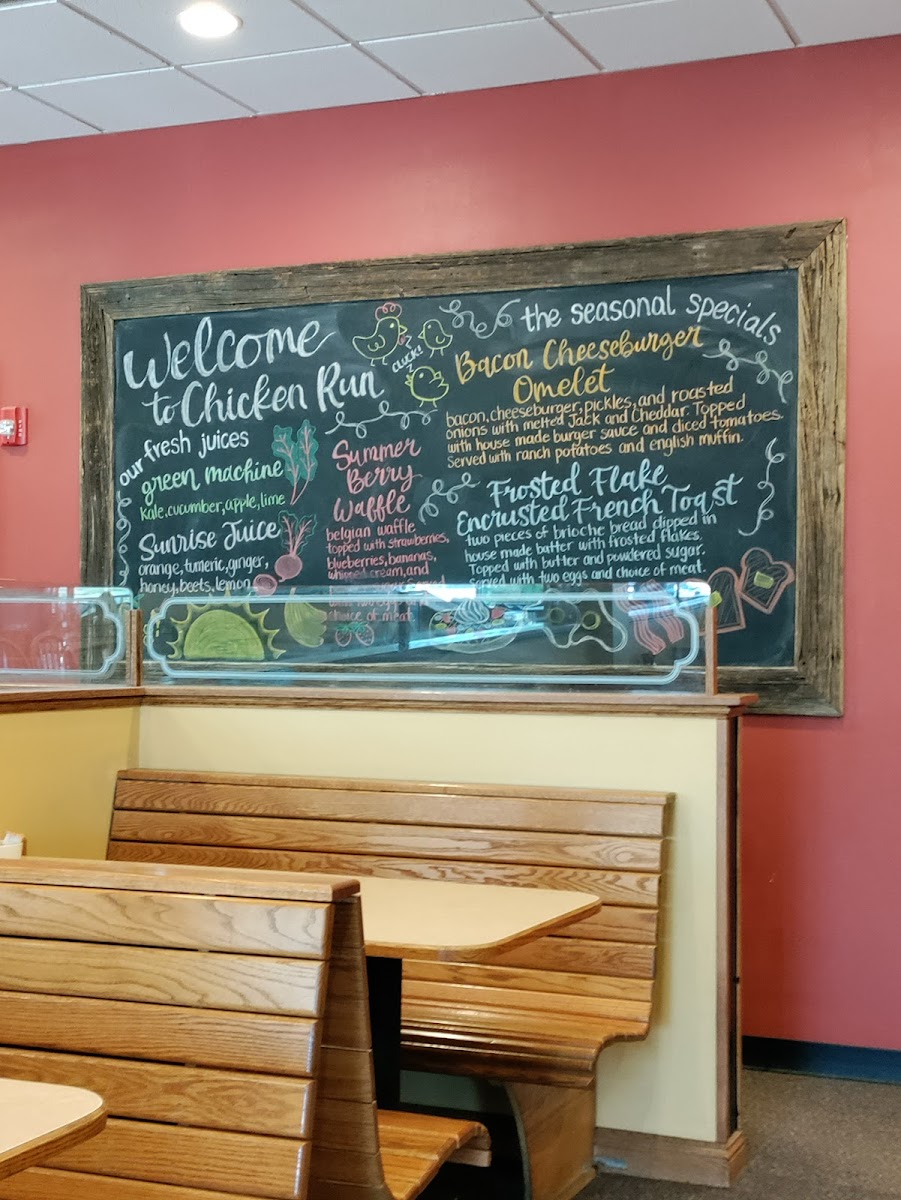 Welcome
to Chicken Run
cluck!
our fresh juices
green machine
kale, cucumber, apple, lime
Sunrise Juice
orange, tumeric, ginger,
honey, beets, lemon
Summer
Berry
Waffle
belgian waffle
topped with strawberries,
blueberries, bananas,
whipped cream, and
choice of meat.
the seasonal specials
Bacon Cheeseburger
Omelet
bacon, cheeseburger, pickles, and roasted
onions with melted Jack and Cheddar. Topped
with house made burger sauce and diced tomatoes.
Served with ranch potatoes and english muffin.
Frosted Flake
Encrusted French Toast
two pieces of brioche bread dipped in
house made batter with frosted flakes.
Topped with butter and powdered sugar.
Served with two eggs and choice of meat.